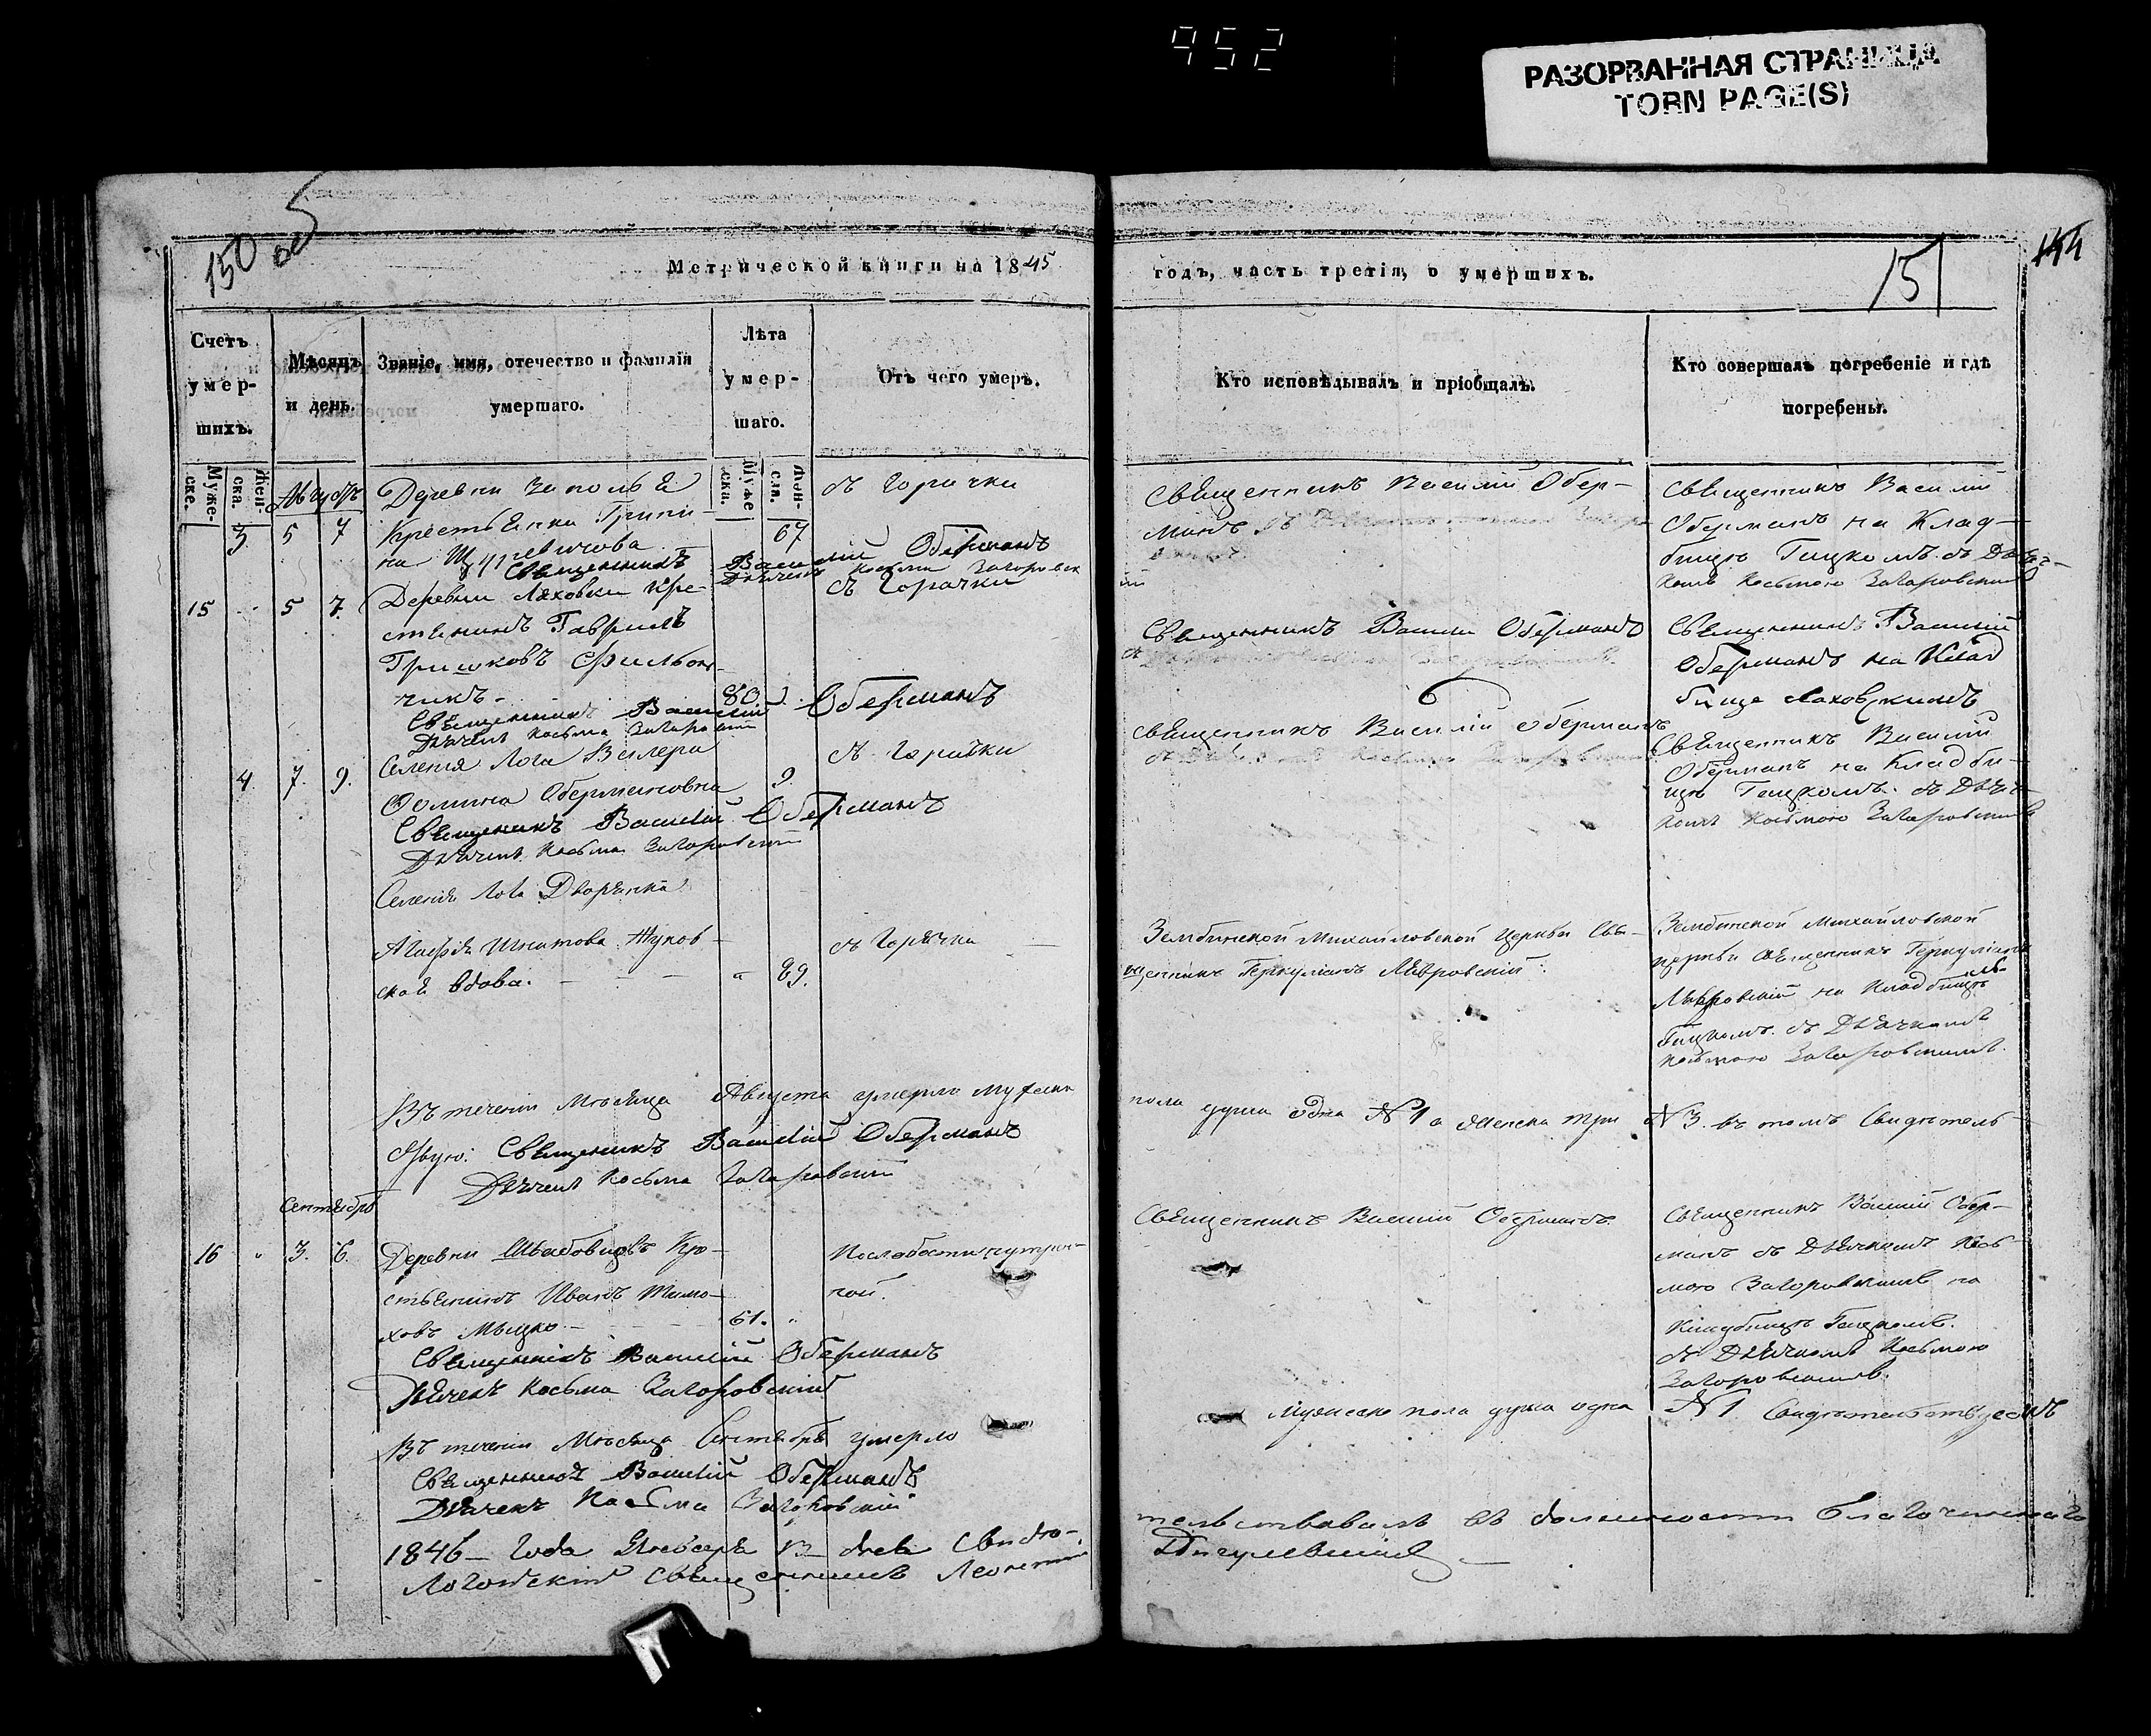 952
РАЗОРВАННАЯ СТРАНИЦА
TORN PAGE(S)
150 об
Метрической книги на 1845
годъ, часть третія, о умершихъ.
151
Счетъ умер-шихъ.
Муже-ске.
Жен-ска.
Мѣсяцъ и день.
Званіе, имя, отечество и фамилія умершаго.
Лѣта умер-шаго.
Муже ска.
Жен-ск.
Отъ чего умеръ.
Кто исповѣдывалъ и пріобщалъ.
Кто совершалъ погребеніе и гдѣ погребены.
Августъ
3 5 7
Деревни Заполья
Крестьянка Грипи-
на
67
съ Горячки
Священникъ Василій Обер-
манъ
Священникъ Василій
Оберманъ на Клад-
бищѣ Гицкомъ съ Дьяч-
комъ Косьмою Загоровскимъ
Священникъ Василій Оберманъ
Дьячекъ Косьма Загоровск
ій
15 5 7.
Деревни Ляховки Кре-
стьянинъ Гавріилъ
Гришковъ Фильон-
чикъ
80
съ Горячки
Священникъ Василій Оберманъ
Священникъ Василій
Оберманъ на Клад
бище Ляховскимъ
Священникъ Василій Оберманъ
Дьячекъ Косьма Загоровскій
4. 7. 9.
Селенія Лога
Фомина Обермановна
9.
съ Горячки
Священникъ Василій Оберманъ
Священникъ Василій
Оберманъ на Кладби-
щѣ Гицкомъ съ Дьяч-
комъ Косьмою Загоровскимъ
Священникъ Василій Оберманъ
Дьячекъ Косьма Загоровскій
Селенія Лога Дворянка
Агафія Игнатова Жуков-
ская вдова.
89.
съ Горячки
Зембинской Михайловской Церкви Свя-
щенникъ
Зембинской Михайловской
церкви священникъ
на Кладбищѣ
Гицкомъ съ Дьячкомъ
Косьмою Загоровскимъ.
Въ теченіи Мѣсяца Августа умерло Мужеска
пола душа одна № 1 а Женска три № 3. въ томъ Свидѣтель
ствую: Священникъ Василій Оберманъ
Дьячекъ Косьма Загоровскій
Сентябрь
16 3. 6.
Деревни Кре-
стьянинъ Иванъ Тимо-
ховъ Мыцко
61.
Священникъ Василій Оберманъ.
Священникъ Василій Обер-
манъ съ Дьячкомъ Кось-
мою Загоровскимъ на
Кладбищѣ Гицкомъ.
съ Дьячкомъ Косьмою
Загоровскимъ.
Священникъ Василій Оберманъ
Дьячекъ Косьма Загоровскій
Въ теченіи Мѣсяца Сентября умерло
Мужеска пола душа одна № 1 Свидѣтельствуемъ
Священникъ Василій Оберманъ
Дьячекъ Косьма Загоровскій
1846 Года Генваря 13 дня Свидѣ-
тельствовалъ въ должности Благочиннаго
Логойскій Священникъ Леонтій